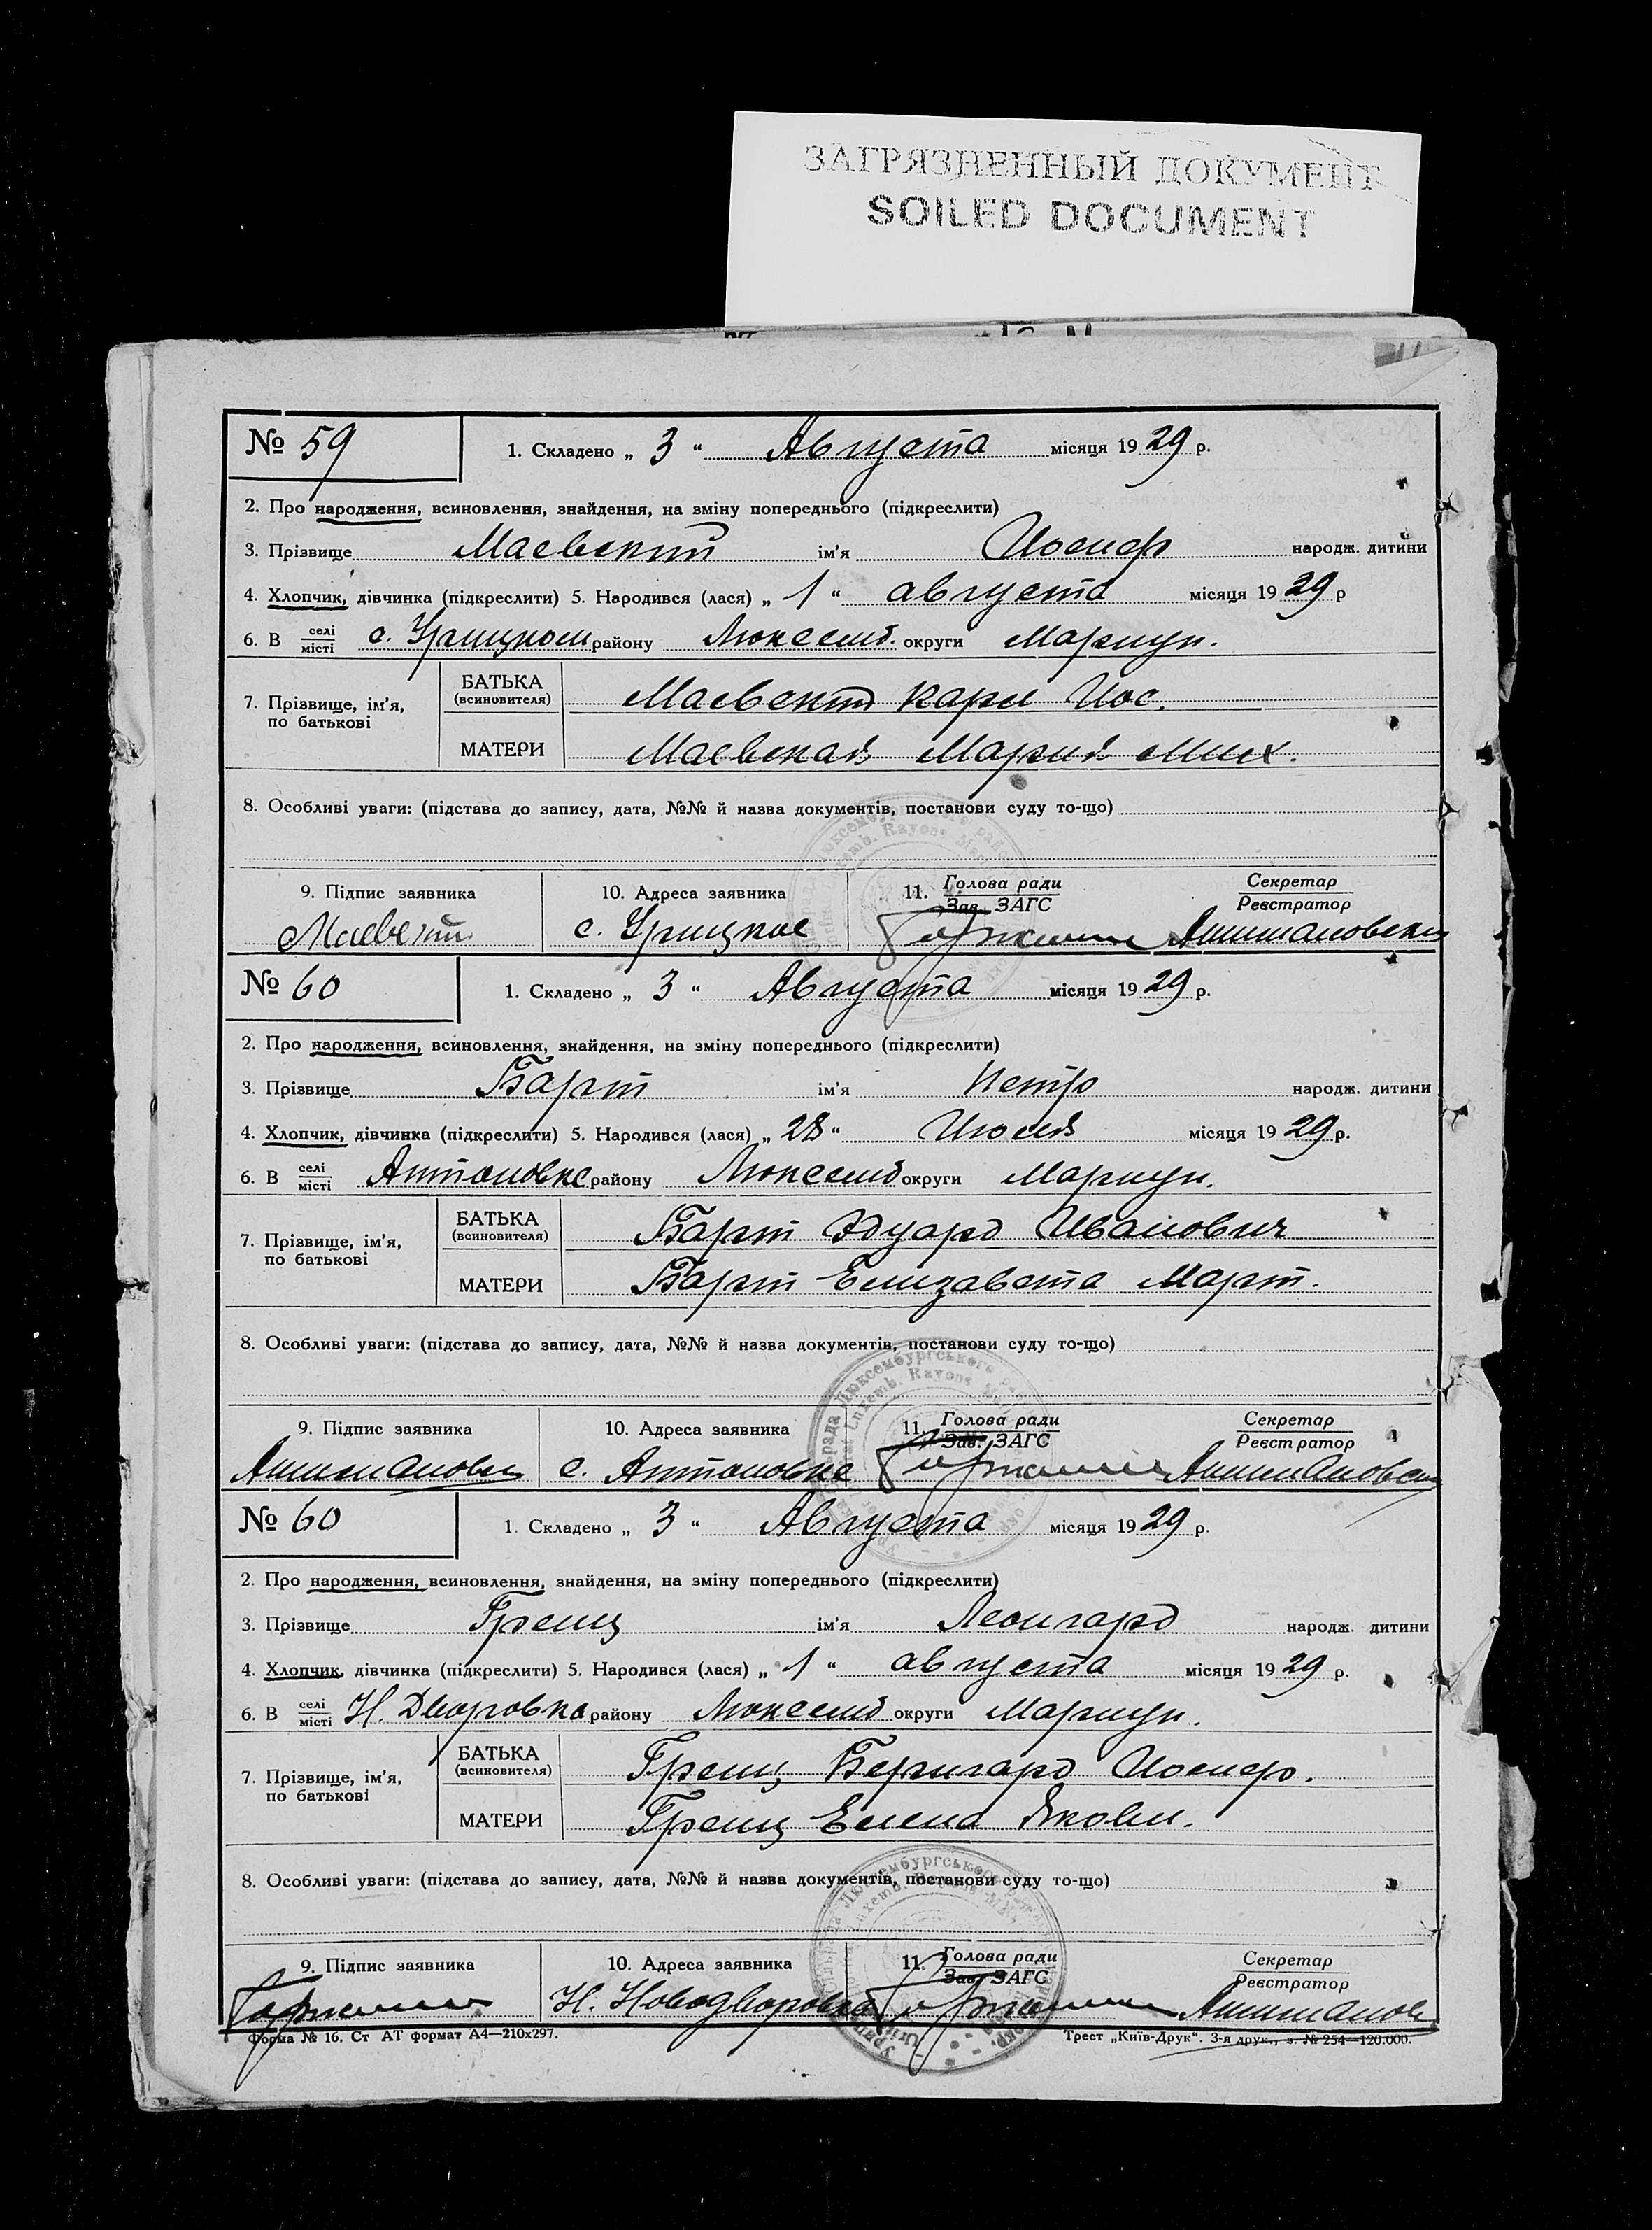 ЗАГРЯЗНЕННЫЙ ДОКУМЕНТ
SOILED DOCUMENT
№ 59 1. Складено „ 3 “ Августа місяця 1929 р.
2. Про народження, всиновлення, знайдення, на зміну попереднього (підкреслити)
3. Прізвище Маевский ім'я Иосиф народж. дитини
4. Хлопчик, дівчинка (підкреслити) 5. Народився (лася) „ 1 “ августа місяця 1929 р
6. В селі місті с. Урицком району Люксемб. округи Мариуп.
7. Прізвище, ім'я, по батькові
БАТЬКА (всиновителя) Маевский Карл Иос.
МАТЕРИ Маевская Мария Мих.
8. Особливі уваги: (підстава до запису, дата, №№ й назва документів, постанови суду то-що)
9. Підпис заявника 10. Адреса заявника 11. Голова ради Зав. ЗАГС Секретар Реєстратор
Маевский с. Урицкое
№ 60 1. Складено „ 3 “ Августа місяця 1929 р.
2. Про народження, всиновлення, знайдення, на зміну попереднього (підкреслити)
3. Прізвище Барт ім'я Петр народж. дитини
4. Хлопчик, дівчинка (підкреслити) 5. Народився (лася) „ 28 “ Июля місяця 1929 р.
6. В селі місті Антоновке району Люксемб округи Мариуп.
7. Прізвище, ім'я, по батькові
БАТЬКА (всиновителя) Барт Эдуард Иванович
МАТЕРИ Барт Елизавета Март.
8. Особливі уваги: (підстава до запису, дата, №№ й назва документів, постанови суду то-що)
9. Підпис заявника 10. Адреса заявника 11. Голова ради Зав. ЗАГС Секретар Реєстратор
с. Антоновке
№ 60 1. Складено „ 3 “ Августа місяця 1929 р.
2. Про народження, всиновлення, знайдення, на зміну попереднього (підкреслити)
3. Прізвище Гренц ім'я Леонгард народж. дитини
4. Хлопчик, дівчинка (підкреслити) 5. Народився (лася) „ 1 “ августа місяця 1929 р.
6. В селі місті Н. Дворовка району Люксемб округи Мариуп.
7. Прізвище, ім'я, по батькові
БАТЬКА (всиновителя) Гренц Бернгард Иосиф.
МАТЕРИ Гренц Елена Яковл.
8. Особливі уваги: (підстава до запису, дата, №№ й назва документів, постанови суду то-що)
9. Підпис заявника 10. Адреса заявника 11. Голова ради Зав. ЗАГС Секретар Реєстратор
Н. Новодворовка
Форма № 16. Ст АТ формат А4—210x297. Трест „Київ-Друк“. 3-я друк., з. № 254—120.000.